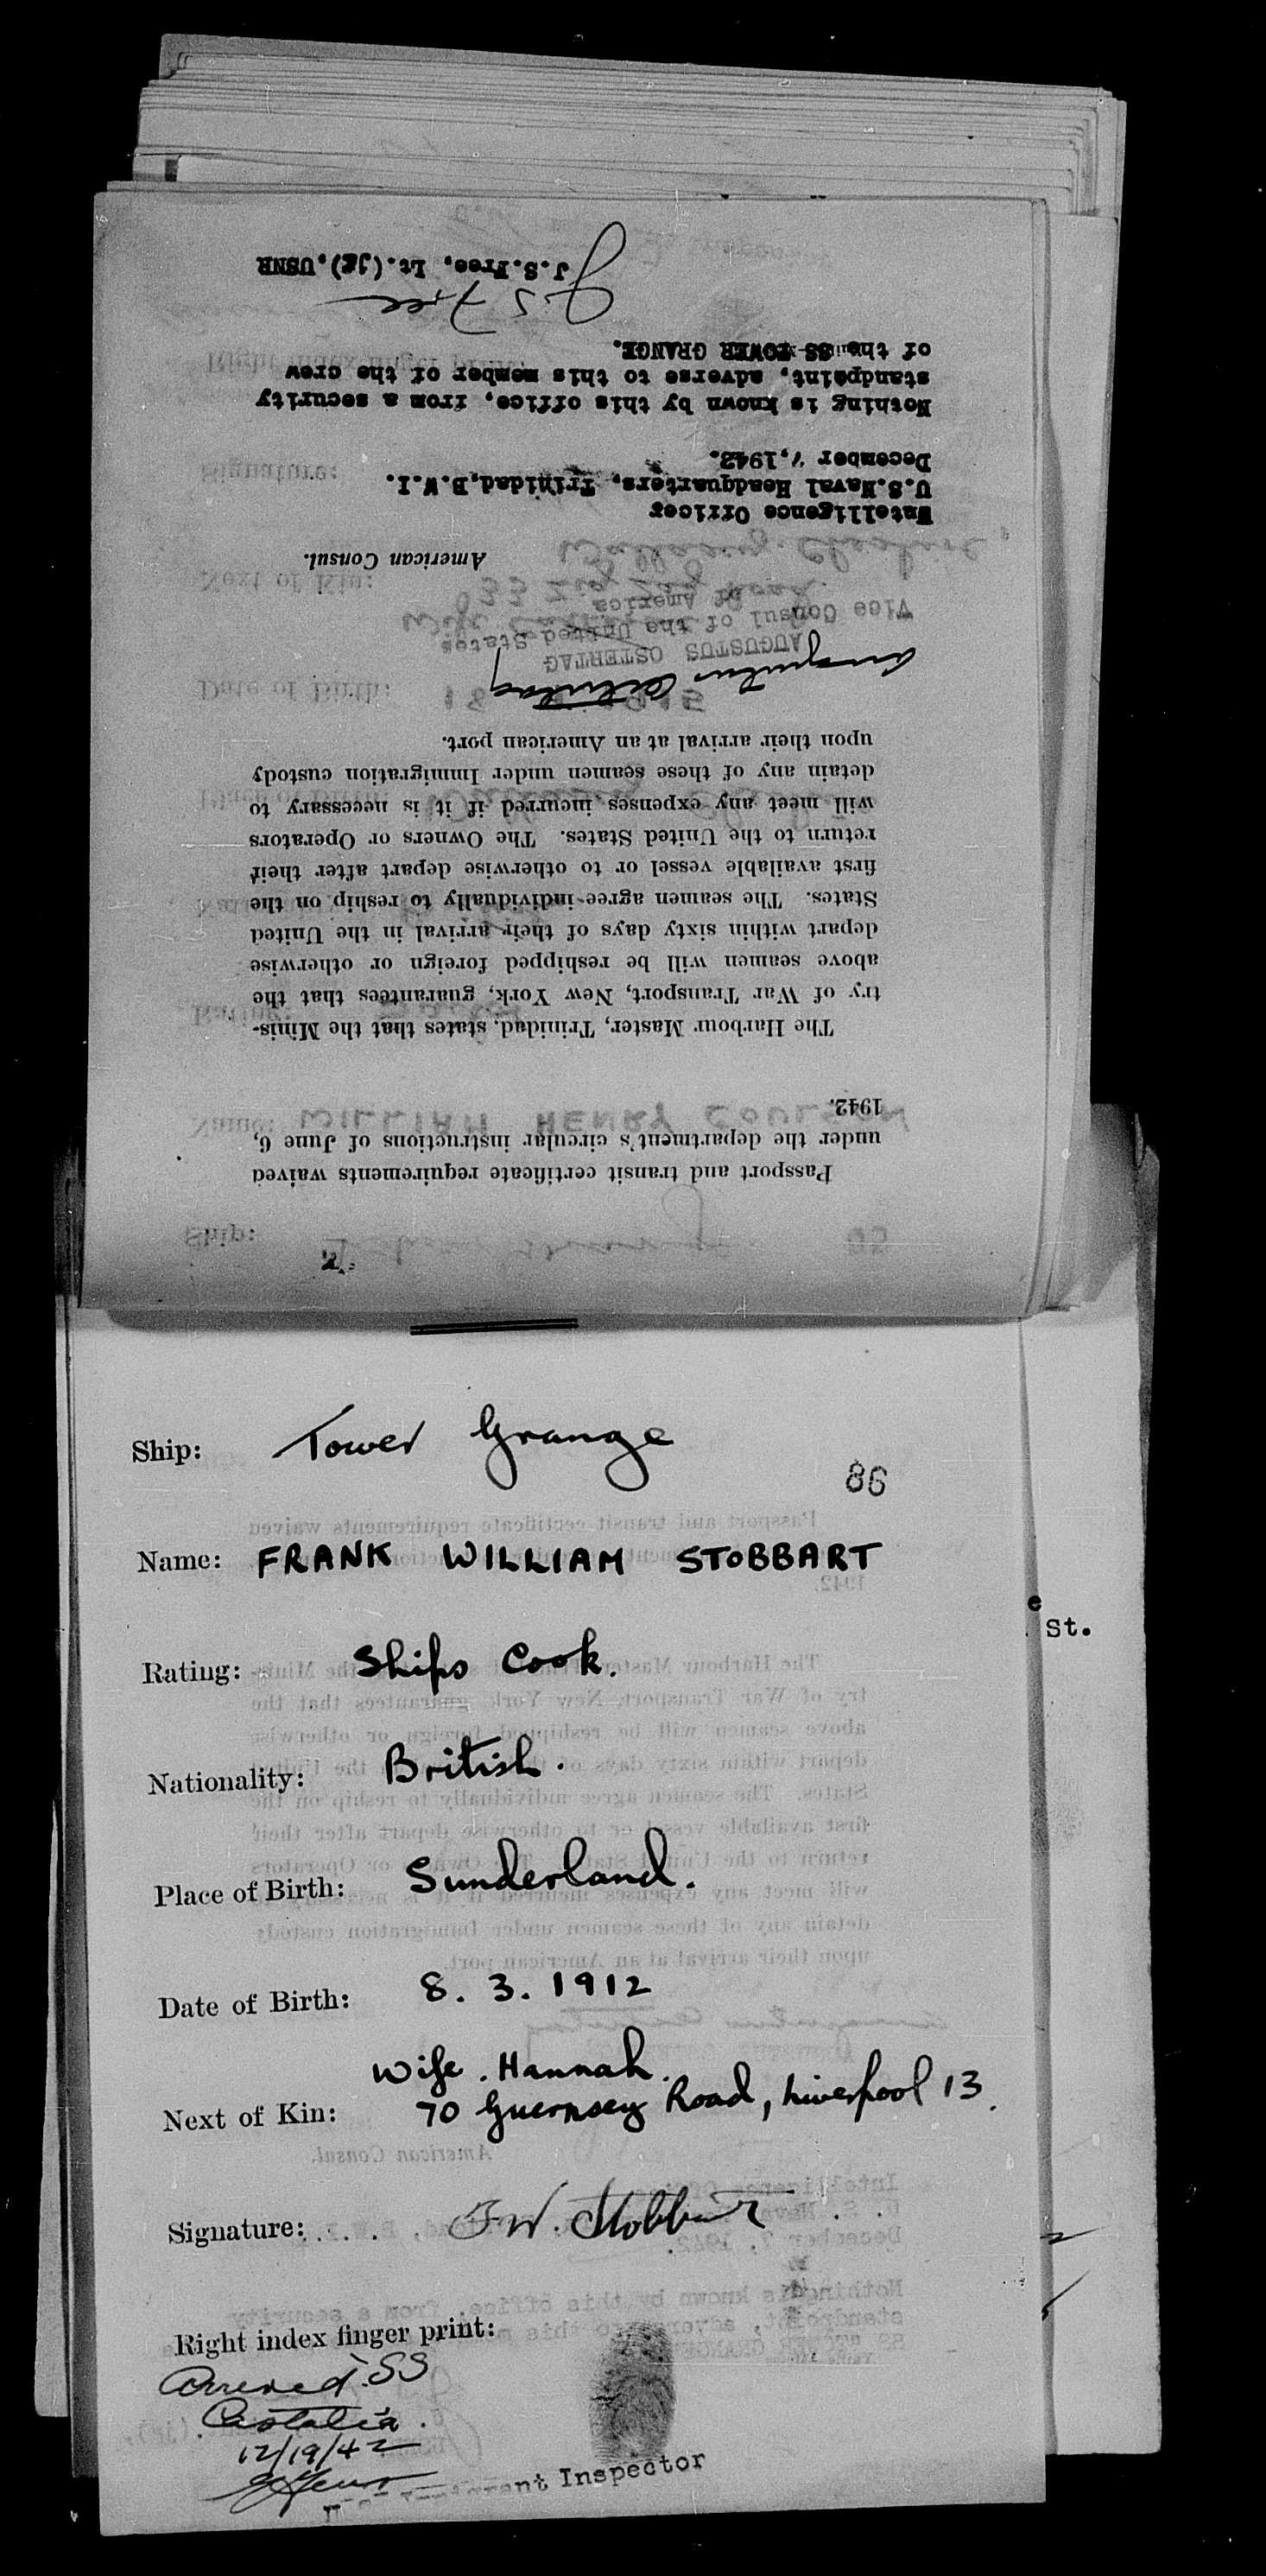 Passport and transit certificate requirements waived
under the department's circular instructions of June 6,
1942.
The Harbour Master, Trinidad, states that the Minis-
try of War Transport, New York, guarantees that the
above seamen will be reshipped foreign or otherwise
depart within sixty days of their arrival in the United
States. The seamen agree individually to reship on the
first available vessel or to otherwise depart after their
return to the United States. The Owners or Operators
will meet any expenses incurred if it is necessary to
detain any of these seamen under Immigration custody
upon their arrival at an American port.
Augustus Ostertag
AUGUSTUS OSTERTAG
Vice Consul of the United States
of America
American Consul.
Intelligence Officer
U.S.Naval Headquarters, Trinidad,B.W.I.
December 7,1942.
Nothing is known by this office, from a security
standpoint, adverse to this member of the crew
of the SS TOWER GRANGE.
J S Free
J.S.Free, Lt.(jg),USNR
Ship: Tower Grange
86
Name: FRANK WILLIAM STOBBART
Rating: Ships Cook.
Nationality: British.
Place of Birth: Sunderland.
Date of Birth: 8. 3. 1912
Wife. Hannah.
Next of Kin: 70 Guernsey Road, Liverpool 13.
Signature: F W. Stobbart
Right index finger print:
Arrived SS
Castalia.
12/19/42
Inspector
e
St.